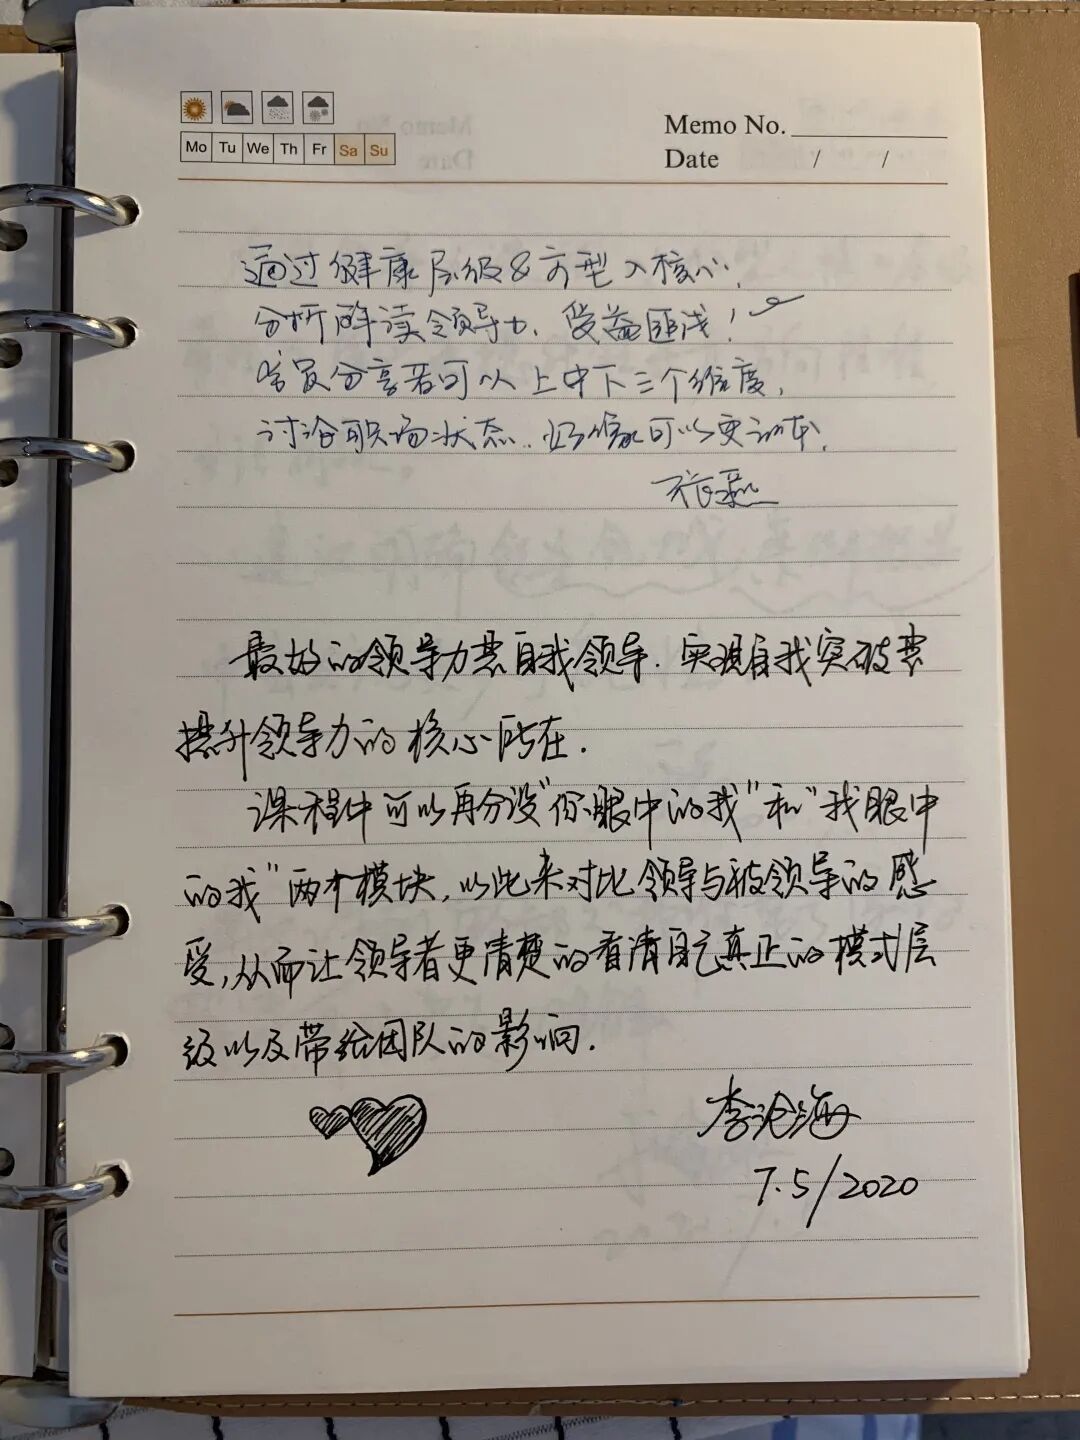 Mo Tu We Th Fr Sa Su
Memo No.
Date / /
通过健康层级&方型入核心,
分析解读领导力,受益匪浅!
分享若可以上中下三个维度,
讨论职场状态,可以更
最好的领导力是自我领导.实现自我突破是
提升领导力的核心所在.
课程中可以再分设"你眼中的我"和"我眼中
的我"两个模块,以此来对比领导与被领导的感
受,从而让领导者更清楚的看清自己真正的模式层
级以及带给团队的影响.
李沧海
7.5/2020